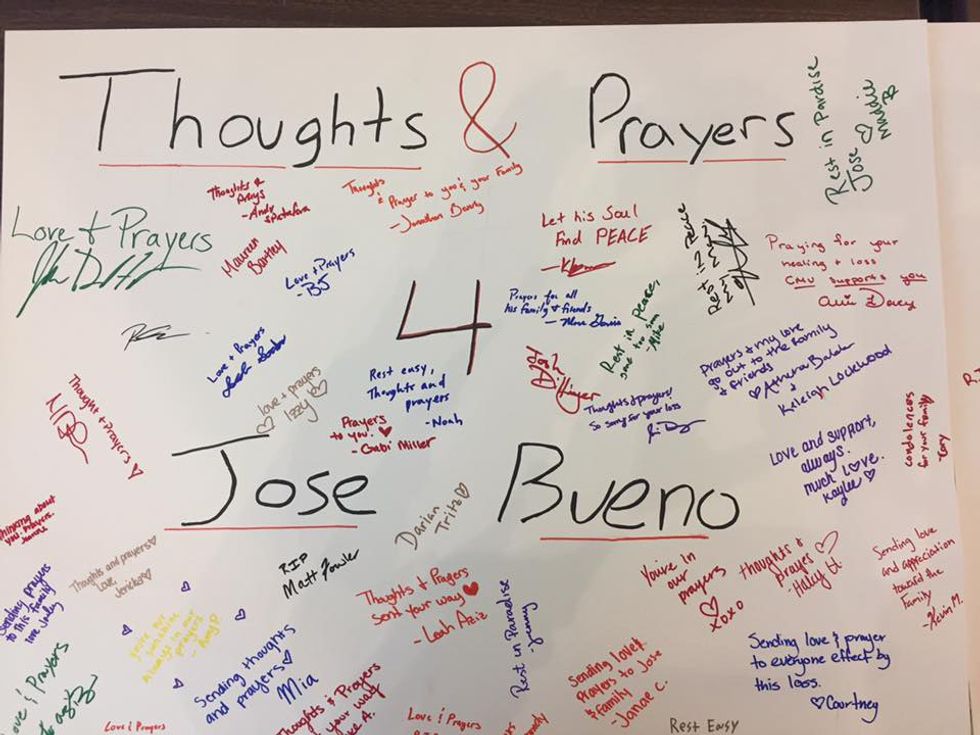 Thoughts & Prayers
4
Jose Bueno
Rest in Pardise
Jose
Maddie
B
Thoughts &
- Andy
Thoughts
& Prayer to you & your Family
- Jonathan
Love + Prayers
Maureen
Love + Prayers
- BJ
Let his Soul
Find PEACE
Rest in Peace
Praying for your
healing + loss
CMU supports you
Prayers for all
his family & friends
Rest in Peace,
- Mike
Prayers & my love
go out to the family
& friends
♡ Athena
&
Keleigh Lockwood
Love + Prayers
love + prayers
Izzy
Rest easy,
Thoughts and
prayers
- Noah
Prayers
to you.
- Gabi Miller
Thoughts & prayers!
So sorry for your loss
Thought + Prayers
Love and support,
always.
much Love.
Kaylee
condolences
for your family
Darian
Tritz
Thinking about
you. Prayers.
Thoughts and prayers
Love,
RIP
Matt Fowler
Thoughts & Prayers
Sent your way
- Leah Aziz
You're in
our
prayers
XOXO
thoughts &
prayes
- Haley H.
Sending love
and appreciation
toward the
Family
- Kevin M.
Sending prayers
to this family
love
always in our
prayers
Sending thoughts
and prayers
Mia
Rest in Paradise
- Jenny
Sending love &
Prayers to Jose
& family
- Janae C.
Sending love & prayer
to everyone effect by
this loss.
♡ Courtney
Love & Prayers
Thoughts & Prayers
your way
A.
Love & Prayers
Love & Prayers
Rest Easy